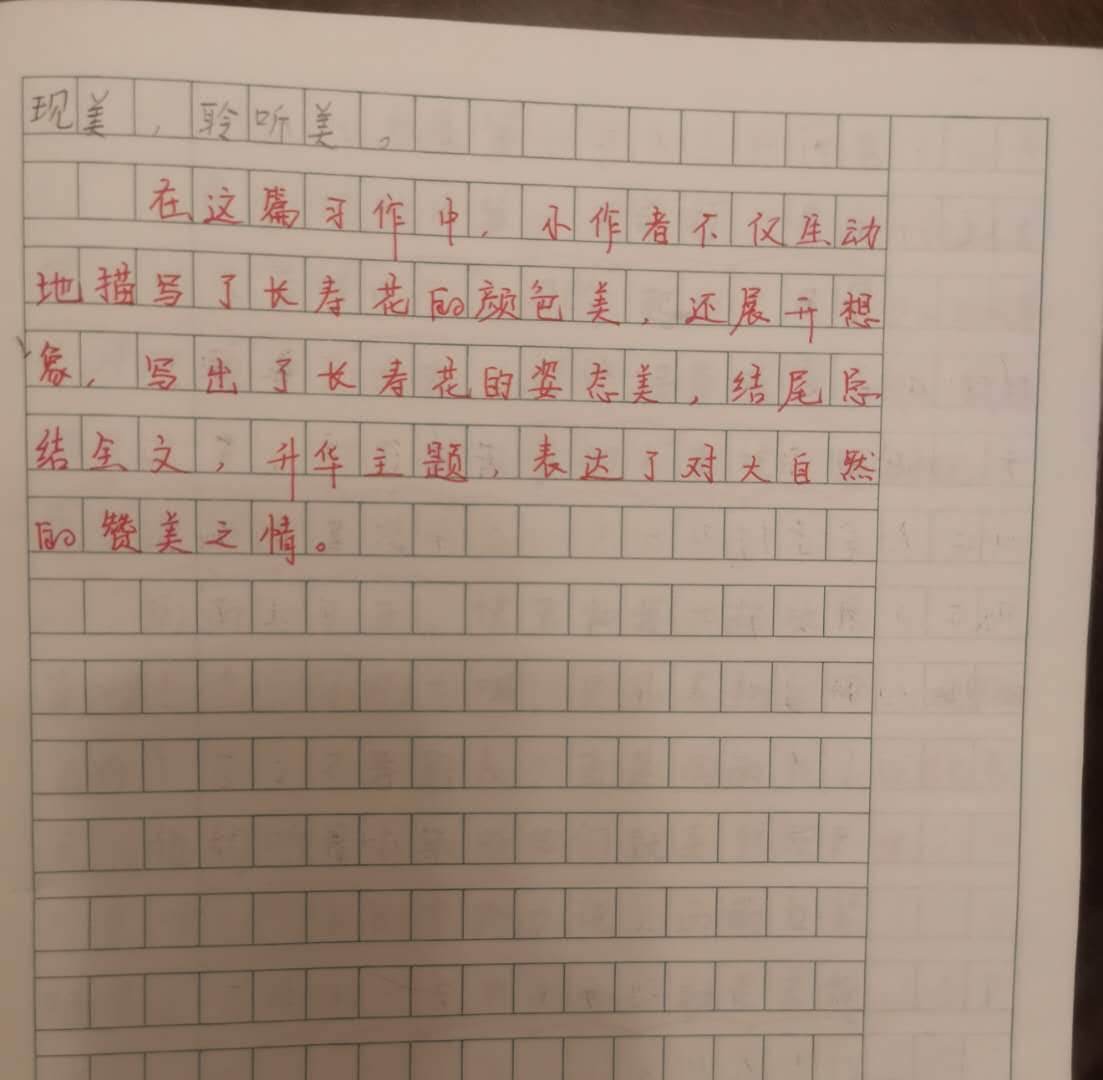 现美，聆听美。
在这篇习作中，小作者不仅生动
地描写了长寿花的颜色美，还展开想
象，写出了长寿花的姿态美，结尾总
结全文，升华主题，表达了对大自然
的赞美之情。